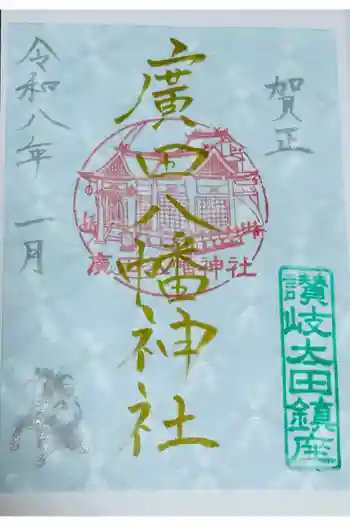 賀正
廣田八幡神社
廣田八幡神社
讃岐太田鎮座
令和八年 一月